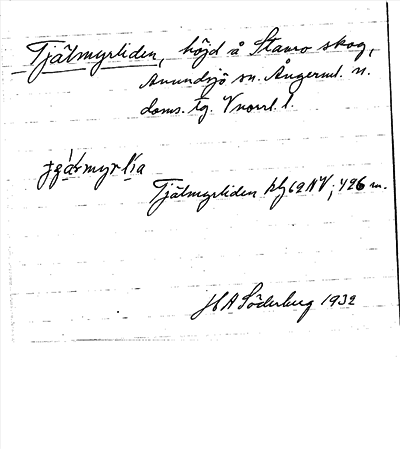 Tjälmyrliden, höjd å Stavro skog,
Anundsjö sn. Ångerml. n.
doms. tg. Vnorrl. l.
Tjälmyrliden kbl 62 NV; 426 m.
HA Söderberg 1932